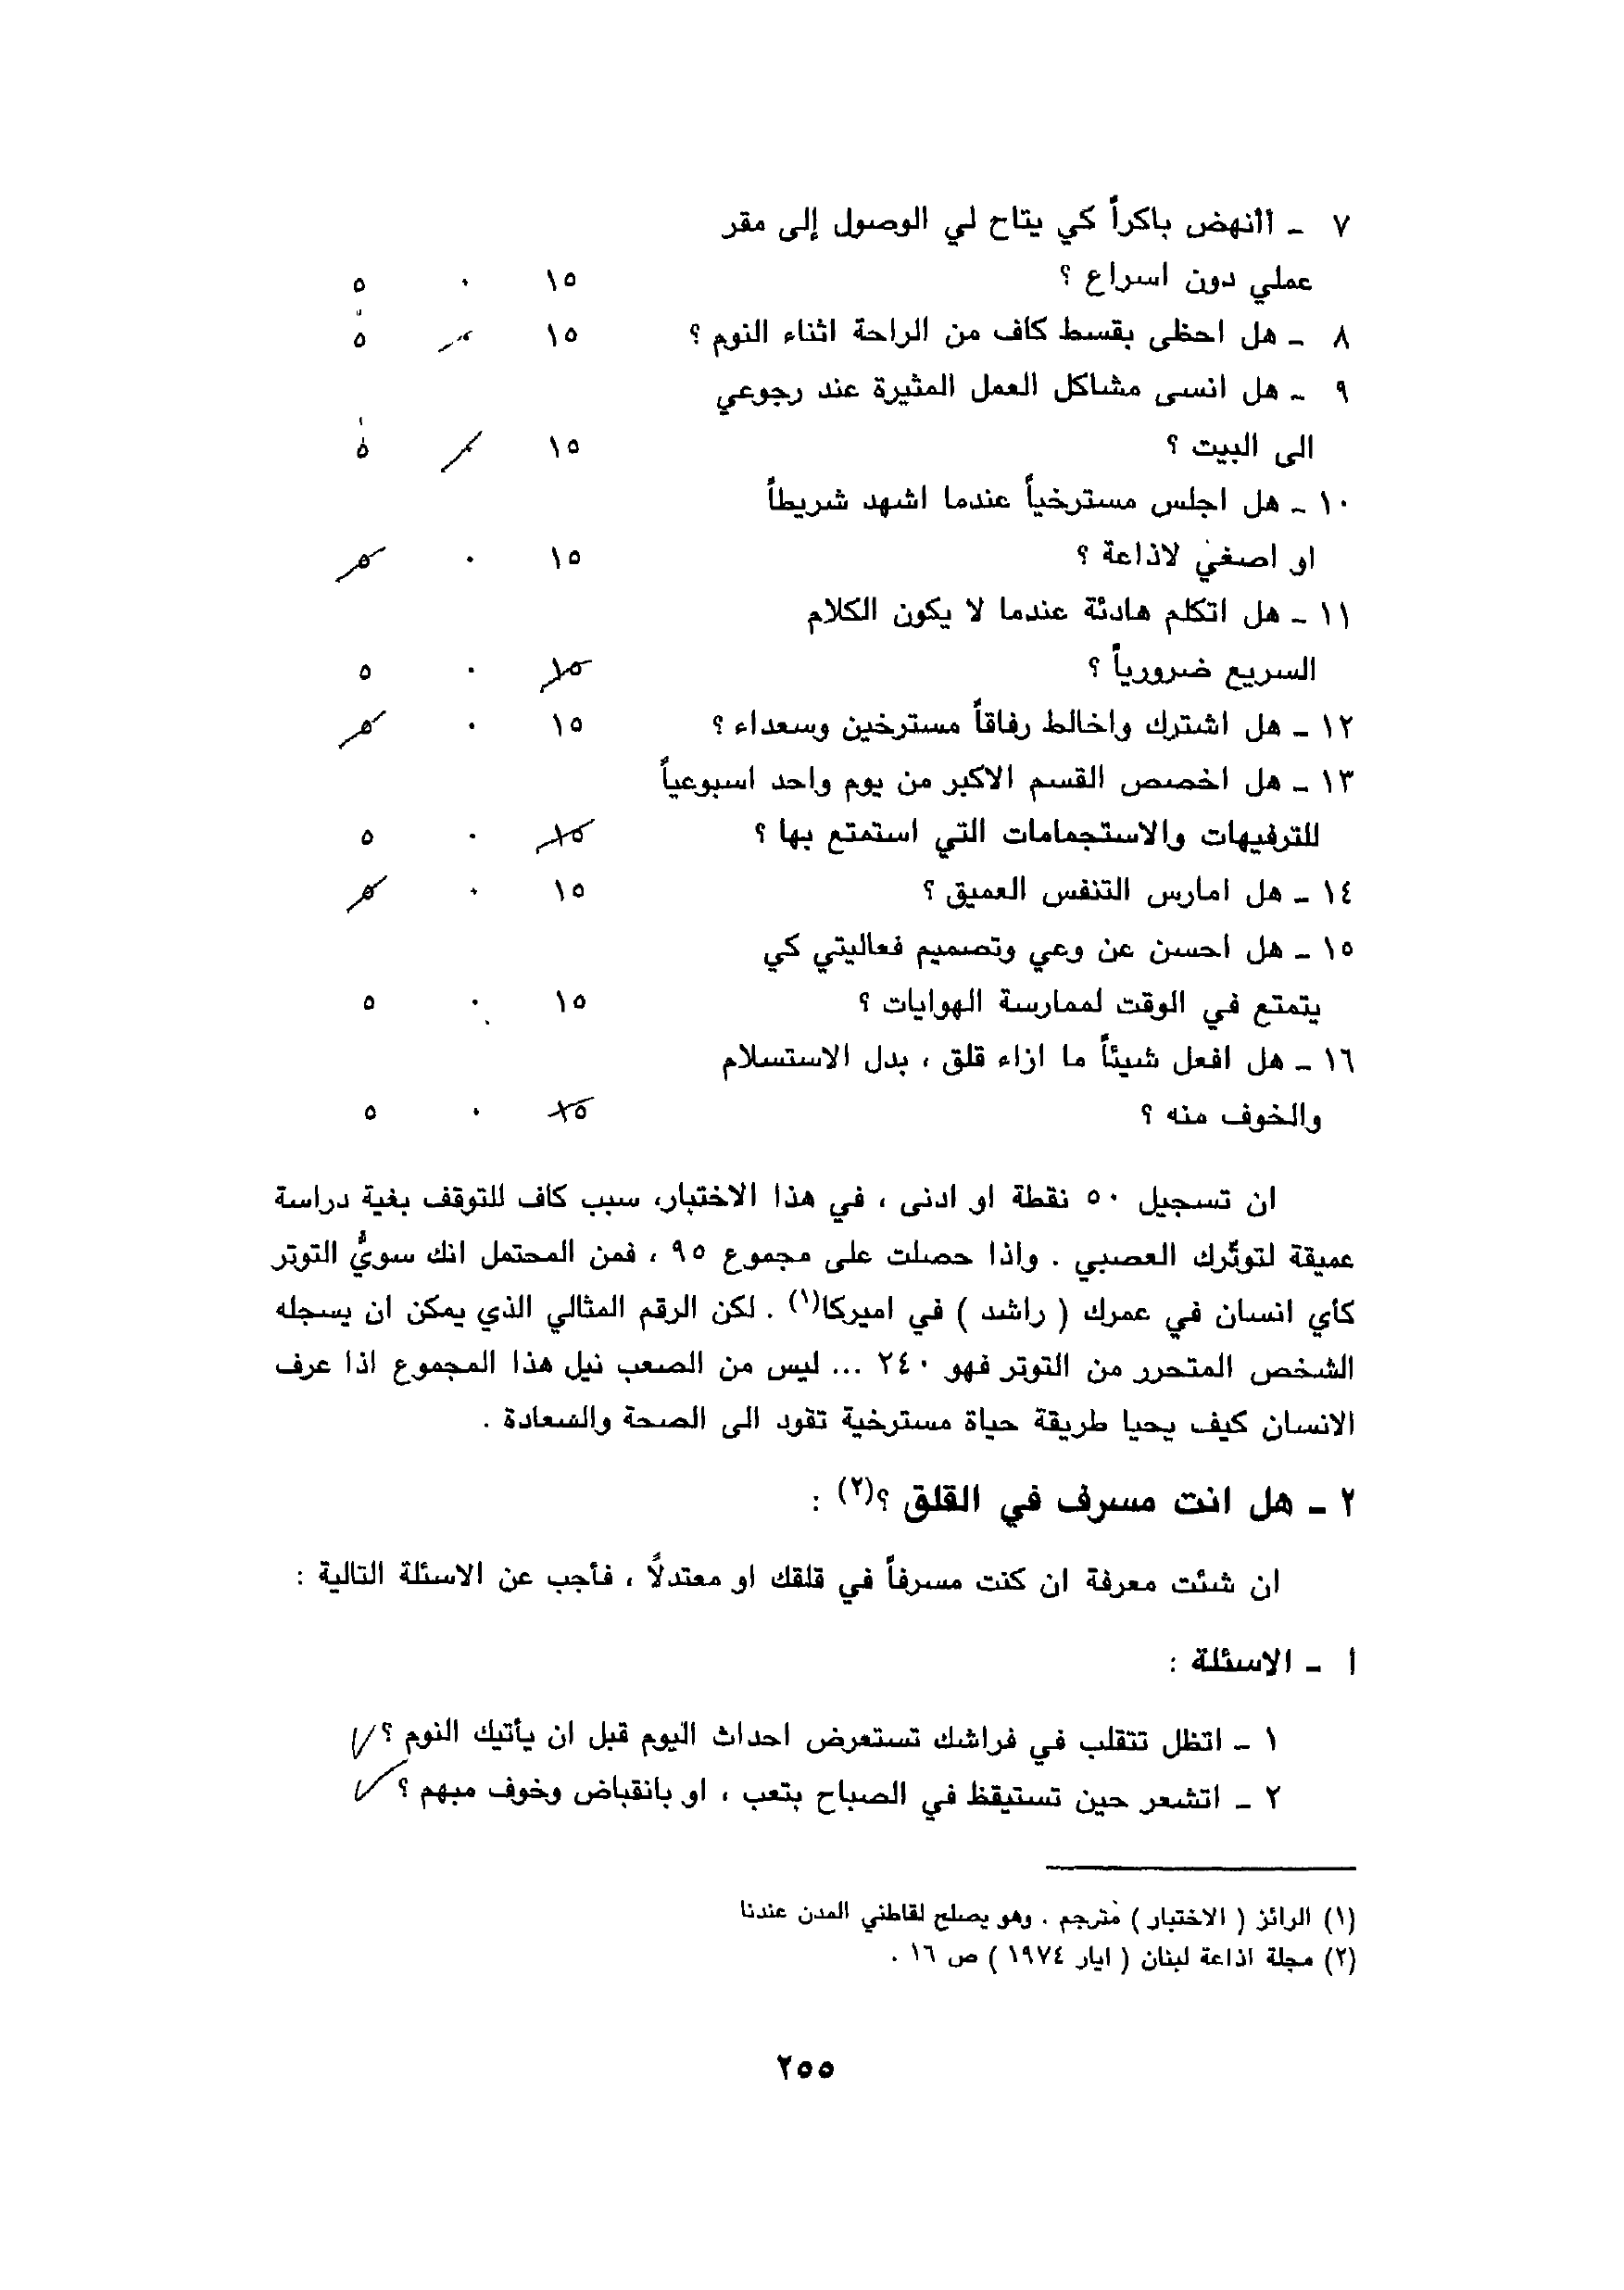 ٧ - أأنهض باكراً كي يتاح لي الوصول إلى مقر
عملي دون اسراع ؟ ١٥ ٠ ٥
٨ - هل احظى بقسط كاف من الراحة اثناء النوم ؟ ١٥ ٠ ٥
٩ - هل انسى مشاكل العمل المثيرة عند رجوعي
الى البيت ؟ ١٥ ٠ ٥
١٠ - هل اجلس مسترخياً عندما اشهد شريطاً
او اصغي لاذاعة ؟ ١٥ ٠ ٥
١١ - هل اتكلم هادئة عندما لا يكون الكلام
السريع ضرورياً ؟ ١٥ ٠ ٥
١٢ - هل اشترك واخالط رفاقاً مسترخين وسعداء ؟ ١٥ ٠ ٥
١٣ - هل اخصص القسم الاكبر من يوم واحد اسبوعياً
للترفيهات والاستجمامات التي استمتع بها ؟ ١٥ ٠ ٥
١٤ - هل امارس التنفس العميق ؟ ١٥ ٠ ٥
١٥ - هل احسن عن وعي وتصميم فعاليتي كي
يتمتع في الوقت لممارسة الهوايات ؟ ١٥ ٠ ٥
١٦ - هل افعل شيئاً ما ازاء قلق ، بدل الاستسلام
والخوف منه ؟ ١٥ ٠ ٥
ان تسجيل ٥٠ نقطة او ادنى ، في هذا الاختبار، سبب كاف للتوقف بغية دراسة
عميقة لتوتّرك العصبي . واذا حصلت على مجموع ٩٥ ، فمن المحتمل انك سويُّ التوتر
كأي انسان في عمرك ( راشد ) في اميركا(١) . لكن الرقم المثالي الذي يمكن ان يسجله
الشخص المتحرر من التوتر فهو ٢٤٠ ... ليس من الصعب نيل هذا المجموع اذا عرف
الانسان كيف يحيا طريقة حياة مسترخية تقود الى الصحة والسعادة .
٢ - هل انت مسرف في القلق ؟(٢) :
ان شئت معرفة ان كنت مسرفاً في قلقك او معتدلًا ، فأجب عن الاسئلة التالية :
ا - الاسئلة :
١ - اتظل تتقلب في فراشك تستعرض احداث اليوم قبل ان يأتيك النوم ؟
٢ - اتشعر حين تستيقظ في الصباح بتعب ، او بانقباض وخوف مبهم ؟
(١) الرائز ( الاختبار ) مترجم . وهو يصلح لقاطني المدن عندنا
(٢) مجلة اذاعة لبنان ( ايار ١٩٧٤ ) ص ١٦ .
٢٥٥